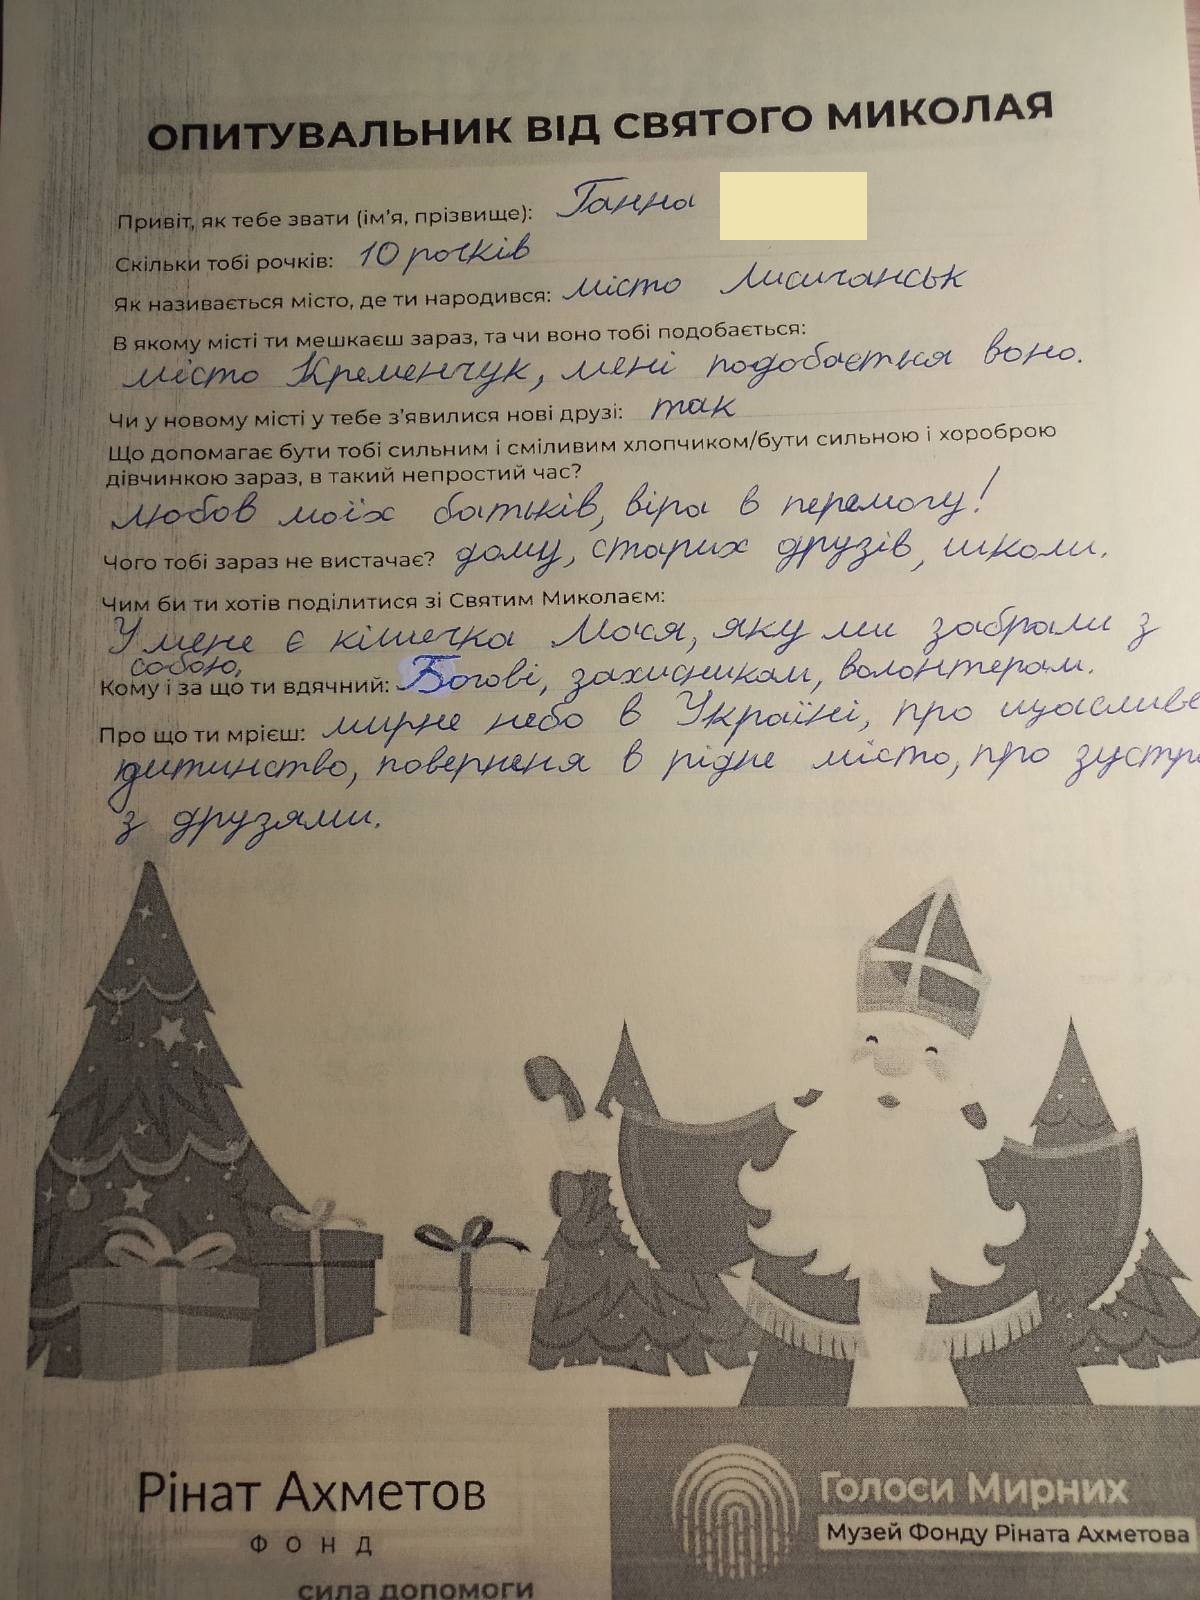 ОПИТУВАЛЬНИК ВІД СВЯТОГО МИКОЛАЯ
Привіт, як тебе звати (ім'я, прізвище): Ганна
Скільки тобі рочків: 10 рочків
Як називається місто, де ти народився: місто Лисичанськ
В якому місті ти мешкаєш зараз, та чи воно тобі подобається:
місто Кременчук, мені подобається воно.
Чи у новому місті у тебе з'явилися нові друзі: так
Що допомагає бути тобі сильним і сміливим хлопчиком/бути сильною і хороброю
дівчинкою зараз, в такий непростий час?
любов моїх батьків, віра в перемогу!
Чого тобі зараз не вистачає? дому, старих друзів, школи.
Чим би ти хотів поділитися зі Святим Миколаєм:
У мене є кішечка Мася, яку ми забрали з
собою,
Кому і за що ти вдячний: Богові, захисникам, волонтерам.
Про що ти мрієш: мирне небо в Україні, про щасливе
дитинство, повернення в рідне місто, про зустр
з друзями.
Рінат Ахметов
ФОНД
сила допомоги
Голоси Мирних
Музей Фонду Ріната Ахметова